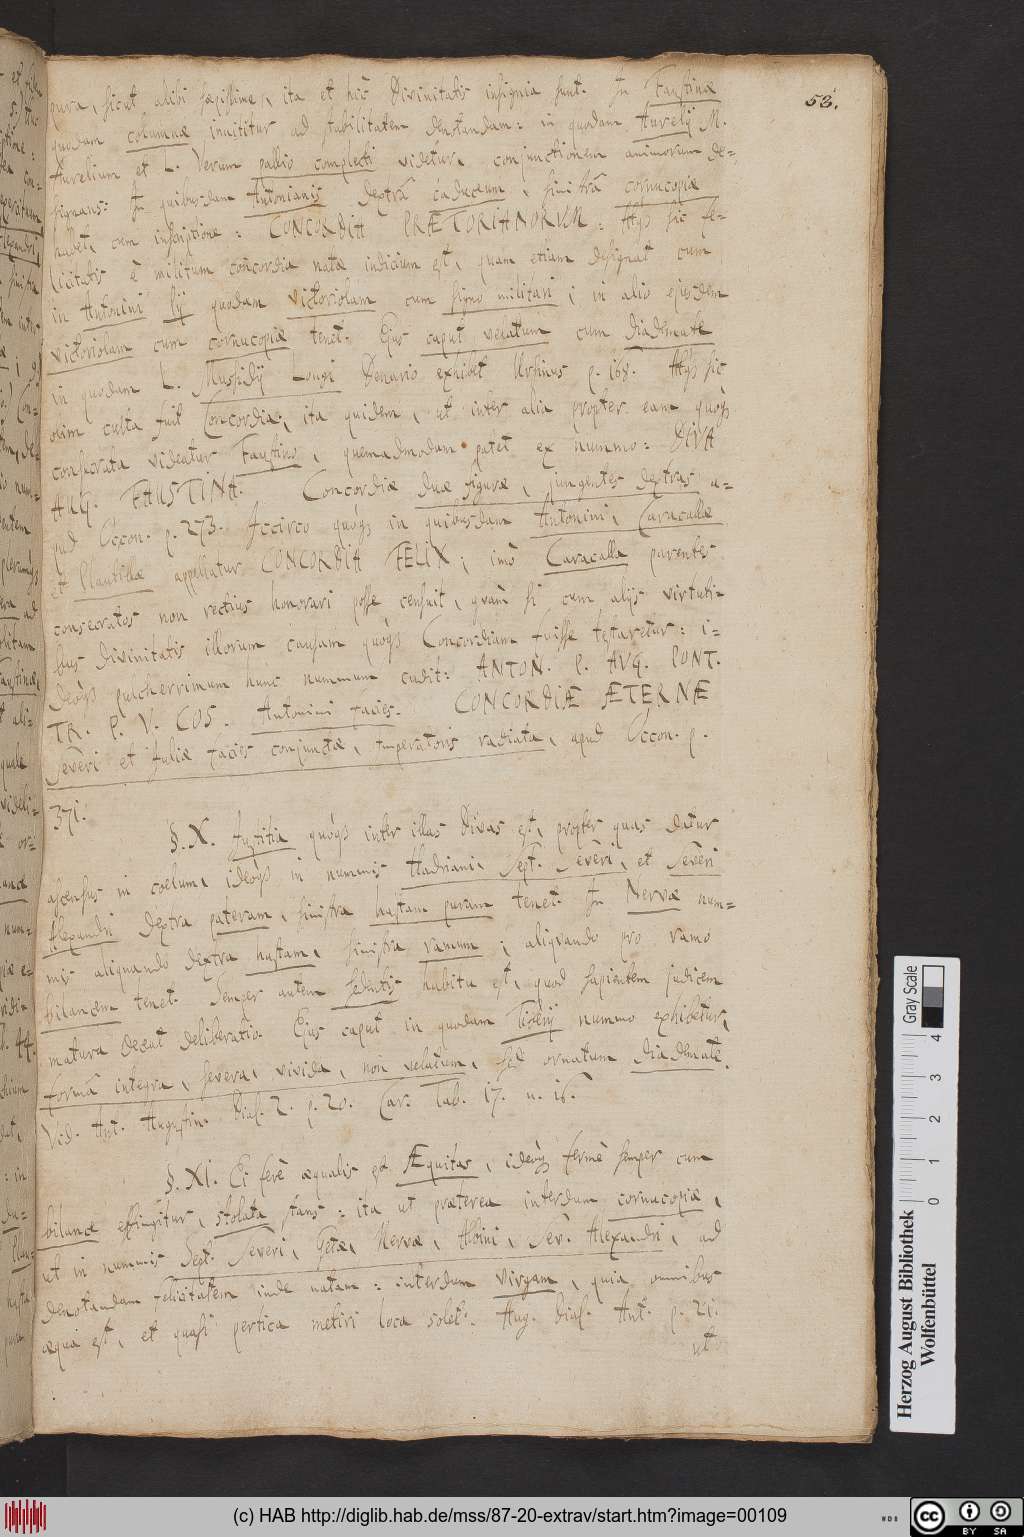 53.
pura, sicut alibi sæpissime, ita et hic Divinitatis insignia sunt. In Faustinæ
quodam columnæ innititur ad stabilitatem denotandam: in quodam Aurelij M.
Aurelium et L. Verum pallio complecti videtur, conjunctionem animorum de=
signans: In quibusdam Antonianis dextrâ caduceum, sinistrâ cornucopiæ
habet, cum inscriptione: CONCORDIA PRÆTORIANORVM: Atqs sic fe=
licitatis è militum concordia natæ indicium est, quam etiam designat cum
in Antonini Pij quodam victoriolam cum signo militari; in alio ejusdem
victoriolam cum cornucopiæ tenet. Ejus caput velatum cum diademate
in quodam L. Mussidij Longi Denario exhibet Ursinus p. 168. Atqs sic
olim culta fuit Concordia, ita quidem, ut inter alia propter eam quoqs
consecrata videatur Faustina, quemadmodum patet ex nummo: DIVA
AUG. FAUSTINA. Concordiæ duæ figuræ, jungentes dextras a=
pud Occon. p. 273. Iccirco quoqs in quibusdam Antonini, Caracallæ
et Plautillæ appellatur CONCORDIA FELIX; imò Caracalla parentes
consecratos non rectius honorari posse censuit, quàm si cum alijs virtuti=
bus Divinitatis illorum causam quoqs Concordiam fuisse testaretur: i=
deoqs pulcherrimum hunc nummum cudit: ANTON. P. AVG. PONT.
TR. P. V. COS. Antonini facies. CONCORDIÆ ÆTERNÆ
Severi et Juliæ facies conjunctæ, Imperatoris radiata, apud Occon. p.
371.
§. X. Justitia quoqs inter illas Divas est, propter quas datur
ascensus in coelum, ideoqs in nummis Hadriani, Sept. Severi, et Severi
Alexandri dextra pateram, sinistra hastam puram tenet. In Nervæ num=
mis aliquando dextra hastam, sinistra ramum; aliquando pro ramo
bilancem tenet. Semper autem sedentis habitu est, quod sapientem judicem
matura deceat deliberatio. Ejus caput in quodam Tiberij nummo exhibetur,
formâ integra, severa, vivida, non velatum, sed ornatum diademate.
Vid. Ant. Augustin. Dial. 2. p. 20. Car. Tab. 17. n. 16.
§. XI. Ei ferè æqualis est Æquitas, ideoqs fermè semper cum
bilance effingitur, stolata stans: ita ut præterea interdum cornucopiæ,
ut in nummis Sept. Severi, Getæ, Nervæ, Albini, Sev. Alexandri, ad
denotandam felicitatem inde natam: interdum virgam, quia omnibus
æqua est, et quasi pertica metiri loca solet. Aug. Dial. Ant. p. 21.
ut
Herzog August Bibliothek
Wolfenbüttel
Gray Scale
0 1 2 3 4
(c) HAB http://diglib.hab.de/mss/87-20-extrav/start.htm?image=00109
WDB
cc BY SA